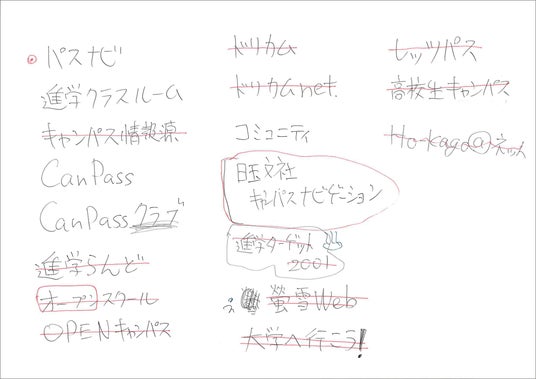 パスナビ
進学クラスルーム
キャンパス情報源
CanPass
CanPassクラブ
進学らんど
オープンスクール
OPENキャンパス
ドリカム
ドリカムnet.
コミュニティ
旺文社
キャンパスナビゲーション
進学ターゲット
2001
螢雪Web
大学へ行こう!
レッツパス
高校生キャンパス
Ho-kago@ネット